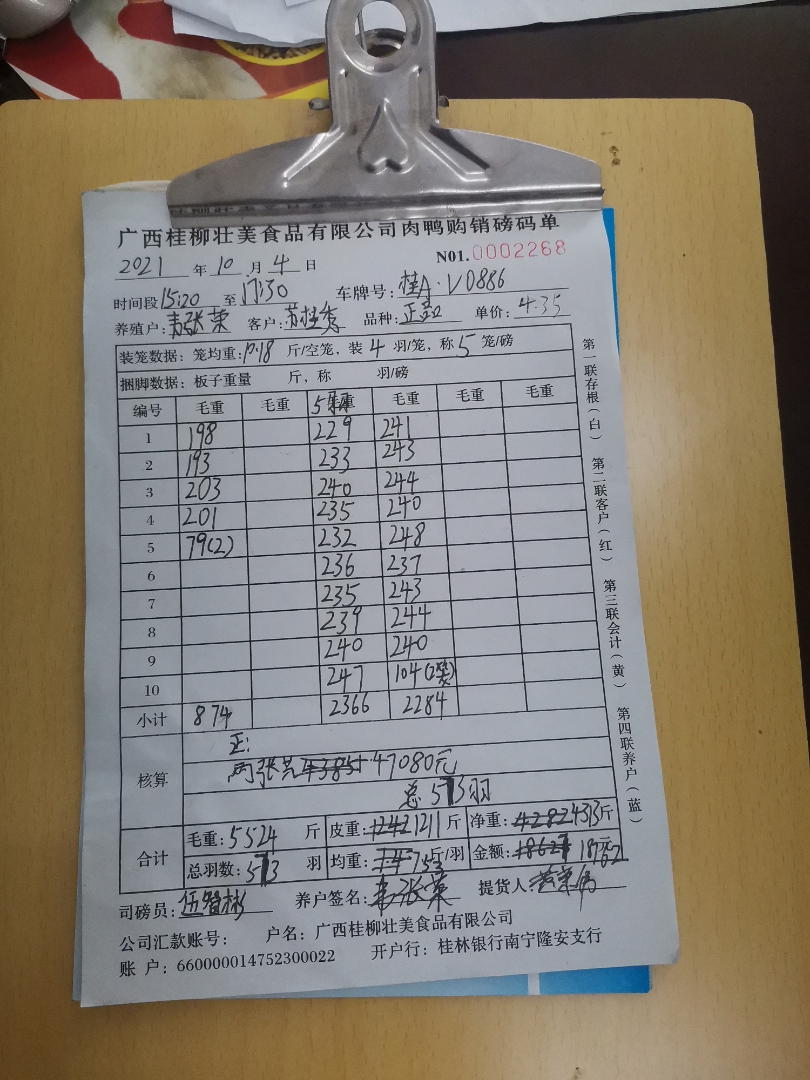 广西桂柳壮美食品有限公司肉鸭购销磅码单
2021 年 10 月 4 日 N01.0002268
时间段 15:20 至 17:30 车牌号: 桂A·V0886
养殖户: 韦张荣 客户: 苏桂秀 品种: 正 单价: 4.35
装笼数据: 笼均重: 17.18 斤/空笼, 装 4 羽/笼, 称 5 笼/磅
捆脚数据: 板子重量 斤, 称 羽/磅
编号 毛重 毛重 5 毛重 毛重 毛重 毛重
1 198 229 241
2 193 233 243
3 203 240 244
4 201 235 240
5 79(2) 232 248
6 236 237
7 235 243
8 239 244
9 240 240
10 247 104(2笼)
小计 874 2366 2284
核算
正:
47080元
总 573羽
合计
毛重: 5524 斤 皮重: 1242 1211 斤 净重: 4282 4313 斤
总羽数: 573 羽 均重: 7.53 斤/羽 金额:
司磅员: 伍智彬 养户签名: 韦张荣 提货人
公司汇款账号: 户名: 广西桂柳壮美食品有限公司
账 户: 660000014752300022 开户行: 桂林银行南宁隆安支行
第一联存根(白) 第二联客户(红) 第三联会计(黄) 第四联养户(蓝)